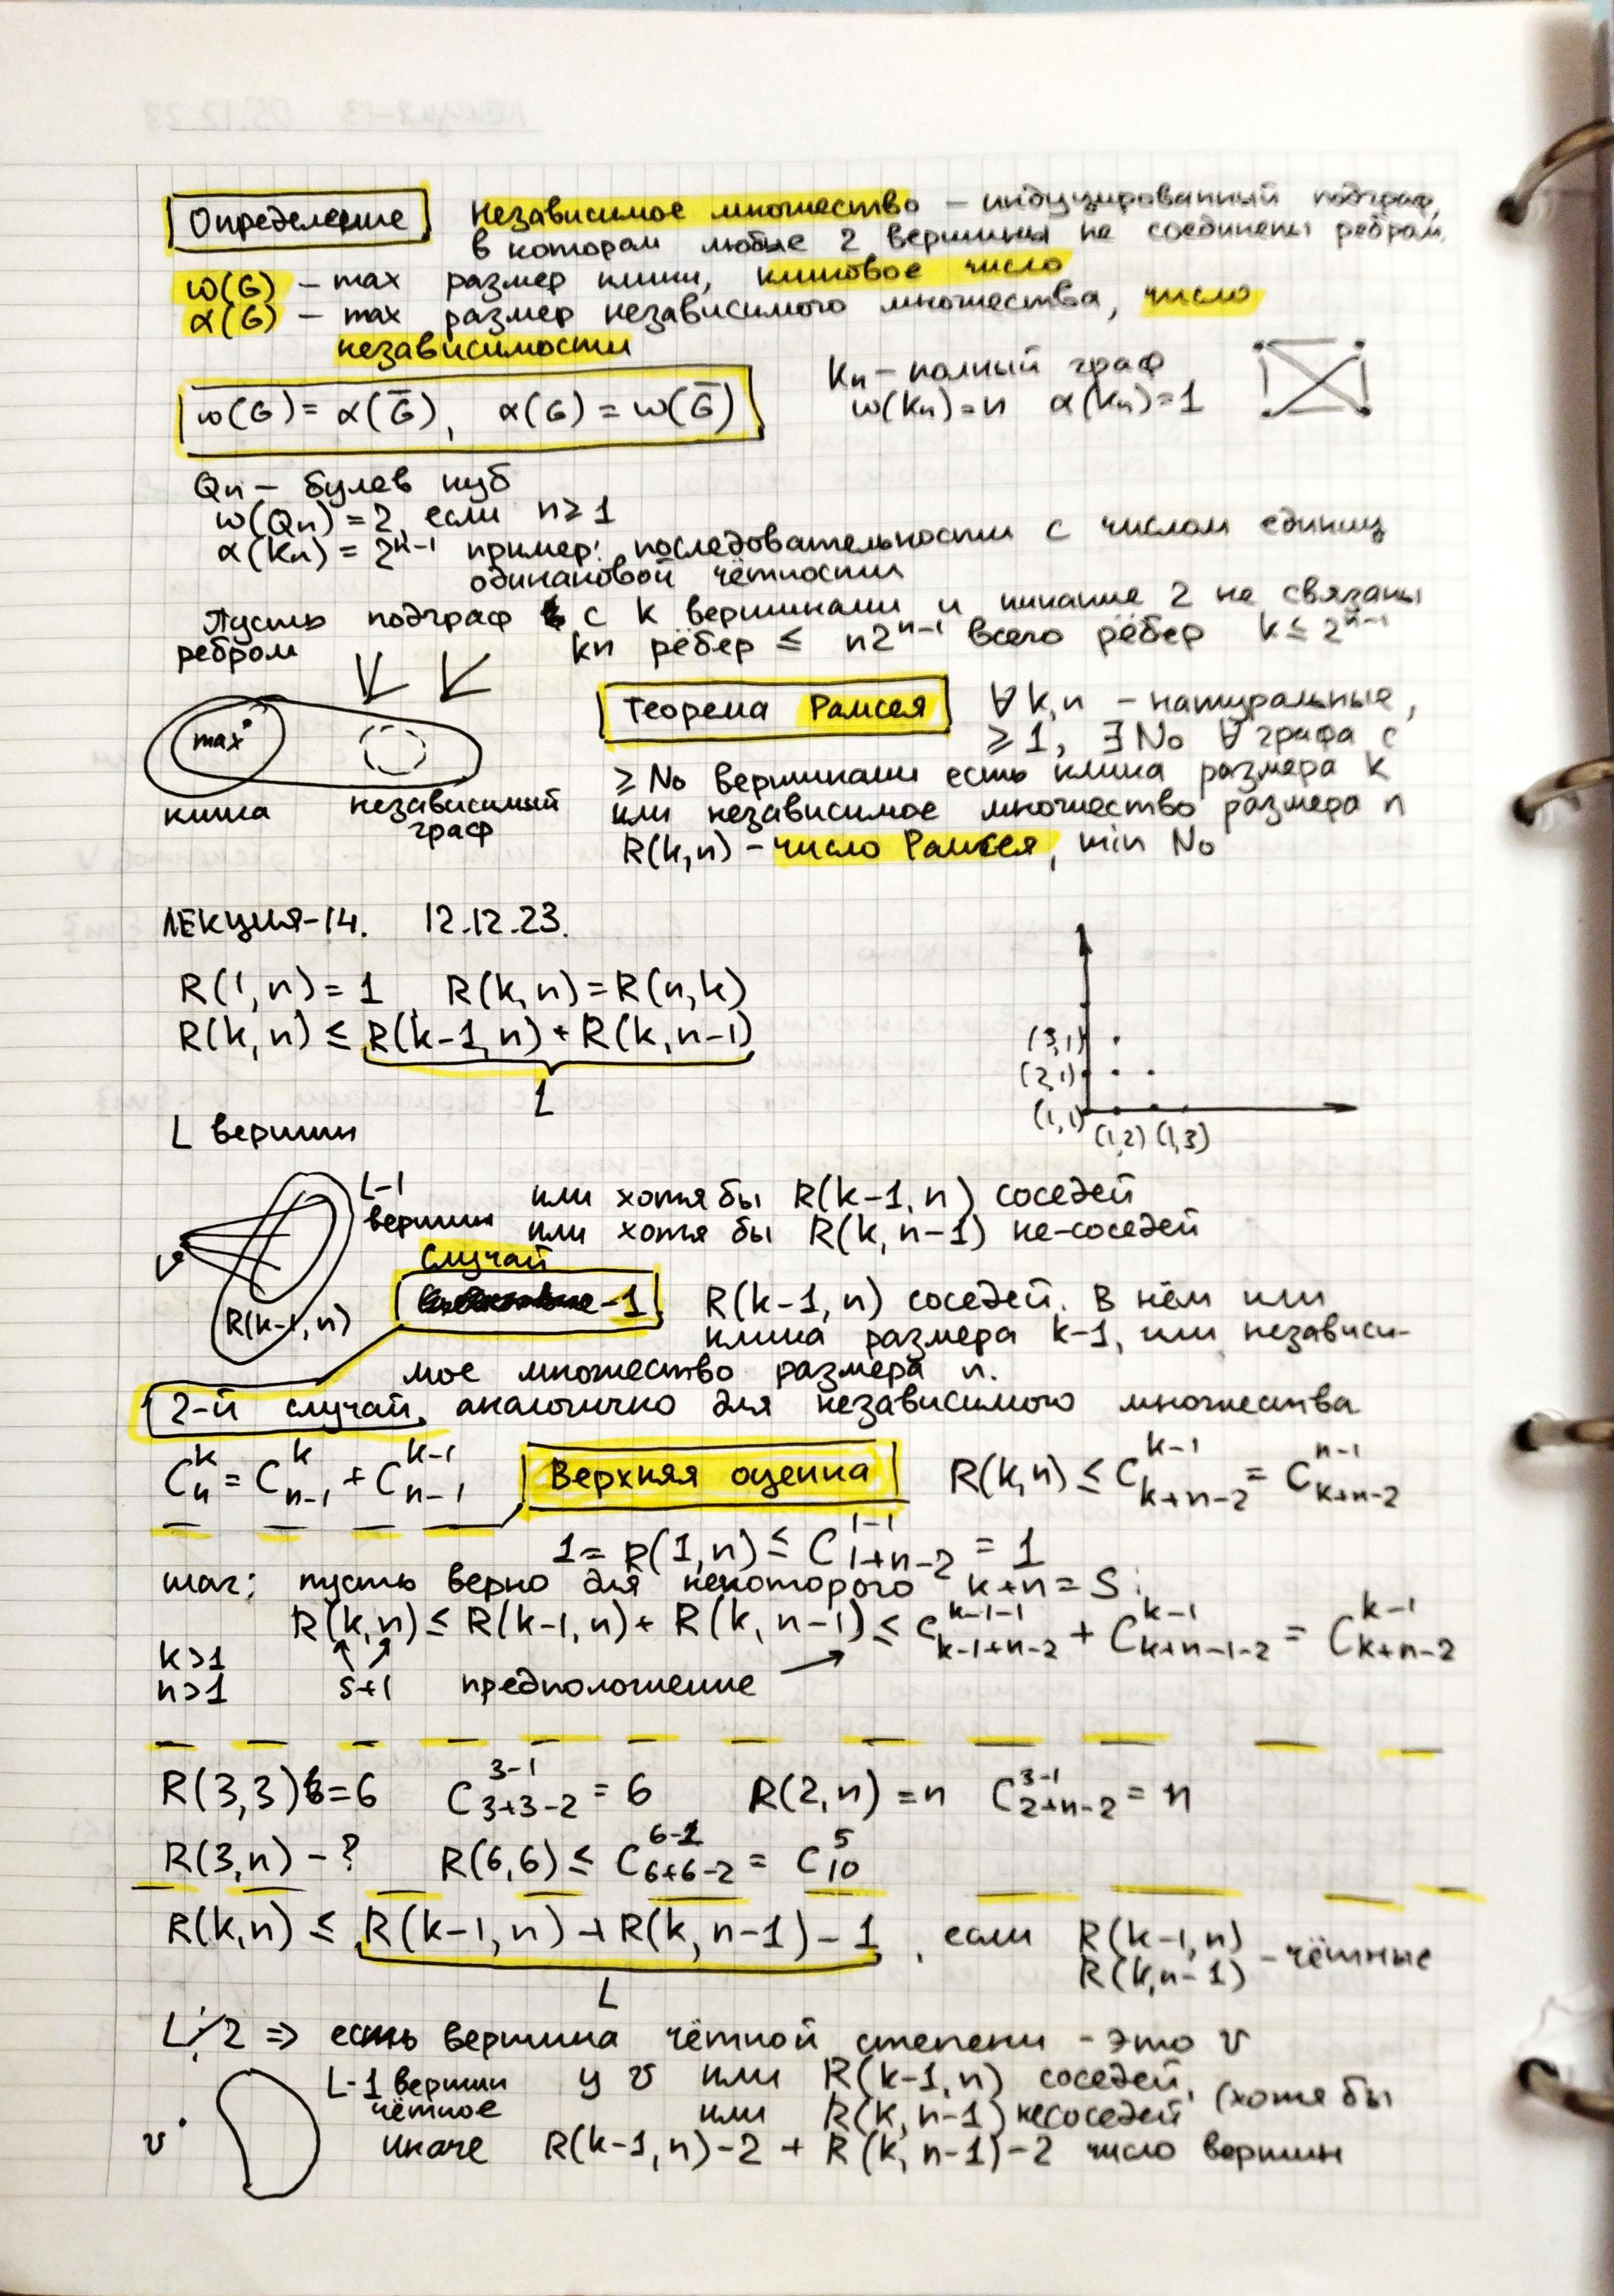 Определение Независимое множество – индуцированный подграф,
в котором любые 2 вершины не соединены ребром.
ω(G) – max размер клики, кликовое число
α(G) – max размер независимого множества, число
независимости
ω(G) = α(G̅), α(G) = ω(G̅)
Kn – полный граф
ω(Kn)=n α(Kn)=1
Qn – булев куб
ω(Qn) = 2, если n≥1
α(Kn) = 2ⁿ⁻¹ пример: последовательности с числом единиц
одинаковой чётности
Пусть подграф с k вершинами и никакие 2 не связаны
ребром kn рёбер ≤ n2ⁿ⁻¹ всего рёбер k≤2ⁿ⁻¹
max
клика независимый
граф
Теорема Рамсея ∀k,n – натуральные,
≥1, ∃N₀ ∀ графа с
≥N₀ вершинами есть клика размера k
или независимое множество размера n
R(k,n) – число Рамсея, min N₀
ЛЕКЦИЯ-14. 12.12.23.
R(1,n)=1 R(k,n)=R(n,k)
R(k,n) ≤ R(k-1,n) + R(k,n-1)
L
(3,1)
(2,1)
(1,1) (1,2) (1,3)
L вершин
L-1
вершин
v
R(k-1,n)
или хотя бы R(k-1,n) соседей
или хотя бы R(k,n-1) не-соседей
Случай
-1 R(k-1,n) соседей. В нём или
клика размера k-1, или независи-
мое множество размера n.
2-й случай, аналогично для независимого множества.
Cₙᵏ = Cₙ₋₁ᵏ + Cₙ₋₁ᵏ⁻¹ Верхняя оценка R(k,n) ≤ C_{k+n-2}^{k-1} = C_{k+n-2}^{n-1}
1 = R(1,n) ≤ C_{1+n-2}^{1-1} = 1
шаг: пусть верно для некоторого k+n=S:
R(k,n) ≤ R(k-1,n) + R(k,n-1) ≤ C_{k-1+n-2}^{k-1-1} + C_{k+n-1-2}^{k-1} = C_{k+n-2}^{k-1}
k>1
n>1 s+1 предположение
R(3,3)=6 C_{3+3-2}^{3-1} = 6 R(2,n)=n C_{2+n-2}^{3-1} = n
R(3,n) – ? R(6,6) ≤ C_{6+6-2}^{6-1} = C_{10}^{5}
R(k,n) ≤ R(k-1,n) + R(k,n-1) – 1, если R(k-1,n)
R(k,n-1) – чётные
L
L⋮̸2 ⇒ есть вершина чётной степени – это v
L-1 вершин у v или R(k-1,n) соседей, (хотя бы
чётное или R(k,n-1) несоседей
v иначе R(k-1,n)-2 + R(k,n-1)-2 число вершин